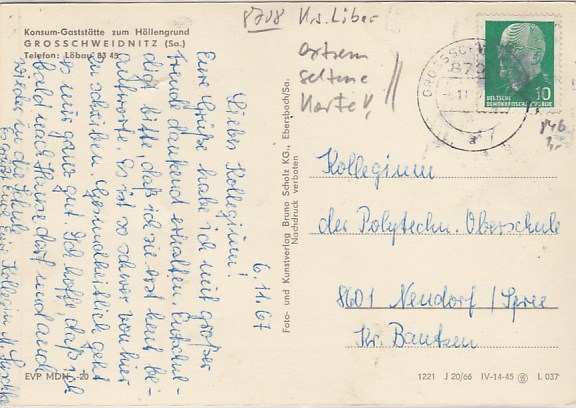 Konsum-Gaststätte zum Höllengrund
GROSSCHWEIDNITZ (Sa.)
Telefon: Löbau 83 45
8708 Krs. Löbau
extrem
seltene
Karte!
GROSSSCHWEIDNITZ
8708
a
10
DEUTSCHE
DEMOKRATISCHE REPUBLIK
6.11.67
Liebes Kollegium!
Eure Grüße habe ich mit großer
Freude dankend erhalten. Entschul-
digt bitte, daß ich sie erst heut be-
antworte. Es ist so schwer von hier
zu schreiben. Gesundheitlich geht
es mir ganz gut. Ich hoffe, daß ich
bald nach Hause darf und auch
wieder in die Schule.
Es grüßt Euch Eure Kollegin
Foto- und Kunstverlag Bruno Scholz KG., Ebersbach/Sa.
Nachdruck verboten
Kollegium
der Polytechn. Oberschule
8601 Neudorf / Spree
Kr. Bautzen
EVP MDN -20
1221 J 20/66 IV-14-45 L 037